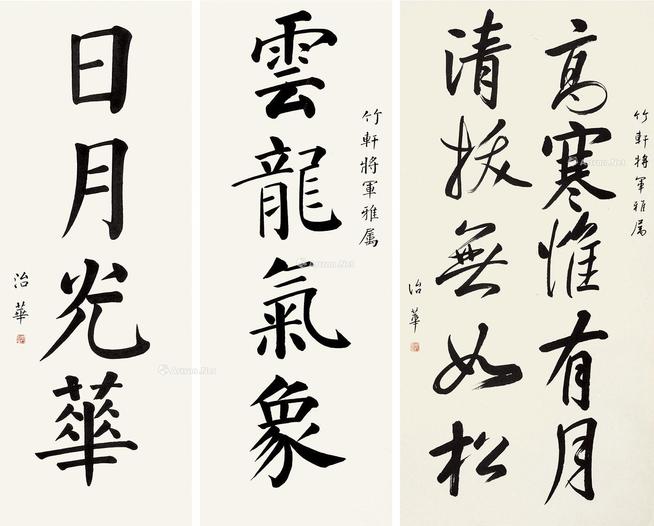 竹軒將軍雅屬
高寒惟有月
清拔無如松
治華
竹軒將軍雅屬
雲龍氣象
日月光華
治華
Artron.Net
Artron.Net
Artron.Net